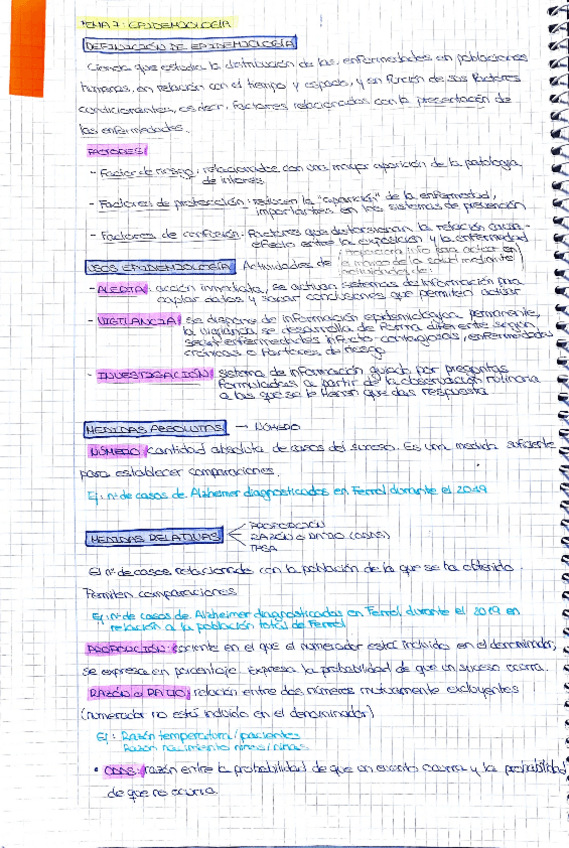 TEMA 7: EPIDEMIOLOGÍA
DEFINICIÓN DE EPIDEMIOLOGÍA
Ciencia que estudia la distribución de las enfermedades en poblaciones
humanas, en relación con el tiempo y espacio, y en función de sus factores
condicionantes, es decir, factores relacionados con la presentación de
las enfermedades.
FACTORES:
- Factor de riesgo: relacionados con una mayor aparición de la patología
de interés
- Factores de protección: reducen la "aparición" de la enfermedad,
importantes en los sistemas de prevención
- Factores de confusión: factores que distorsionan la relación causa-
efecto entre la exposición y la enfermedad
USOS EPIDEMIOLOGÍA Actividades de info para actuar en
de la salud mediante
actividades de:
- ALERTA: acción inmediata, se activan sistemas de información para
captar datos y sacar conclusiones que permiten actuar
- VIGILANCIA: se dispone de información epidemiológica permanente,
la vigilancia se desarrolla de forma diferente según
sean enfermedades infecto-contagiosas, enfermedades
crónicas o factores de riesgo
- INVESTIGACIÓN: sistema de información guiado por preguntas
formuladas a partir de la observación rutinaria
a las que se le tienen que dar respuesta
MEDIDAS ABSOLUTAS → NÚMERO
NÚMERO: cantidad absoluta de casos del suceso. Es una medida suficiente
para establecer comparaciones.
Ej: nº de casos de Alzheimer diagnosticados en Ferrol durante el 2019
MEDIDAS RELATIVAS
PROPORCIÓN
RAZÓN o RATIO (ODDS)
TASA
El nº de casos relacionado con la población de la que se ha obtenido.
Permiten comparaciones
Ej: nº de casos de Alzheimer diagnosticados en Ferrol durante el 2019 en
relación a la población total de Ferrol
PROPORCIÓN: cociente en el que el numerador está incluido en el denominador,
se expresa en porcentaje. Expresa la probabilidad de que un suceso ocurra.
RAZÓN o RATIO: relación entre dos números mutuamente excluyentes
(numerador no está incluido en el denominador)
Ej: Razón temperatura/pacientes
Razón nacimiento niños/niñas
• ODDS: razón entre la probabilidad de que un evento ocurra y la probabilidad
de que no ocurra.